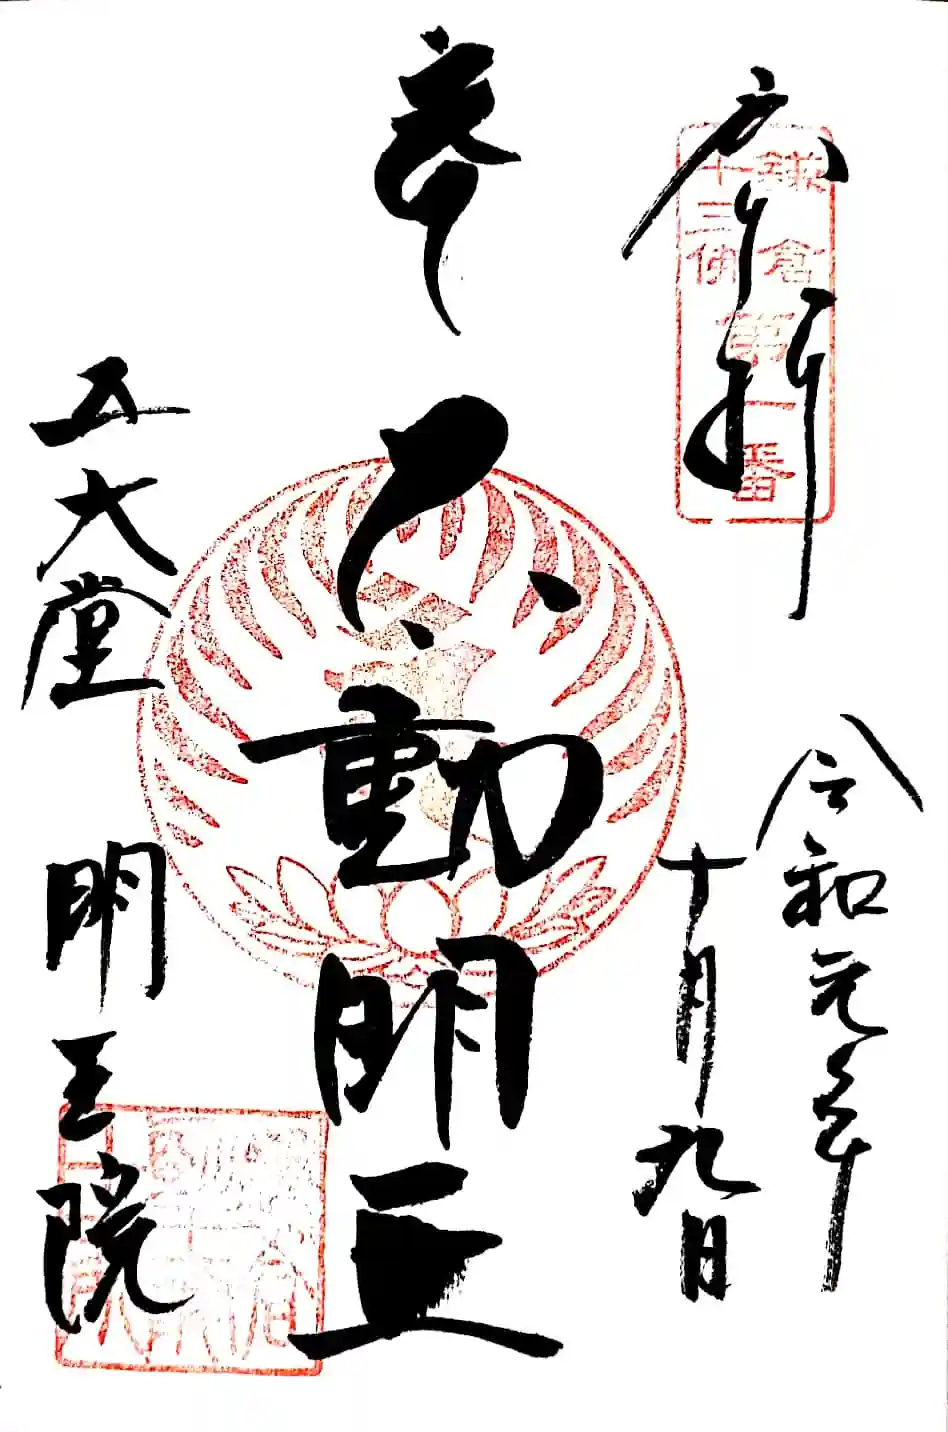 奉拝
鎌倉
十三佛
第一番
令和元年
十月九日
不動明王
五大堂
明王院